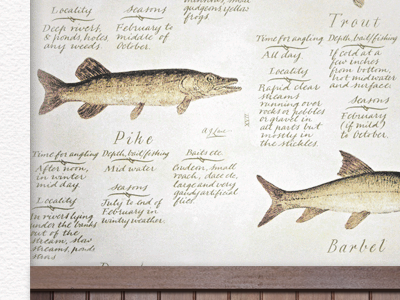 Locality
Deep rivers,
& ponds, holes,
any weeds.
Seasons
February to
middle of
October.
gudgeons yellow
frogs.
Trout
Time for angling
All day.
Locality
Rapid clear
streams
running over
rocks or pebbles
or gravel in
all parts but
mostly in
the stickles.
Depth, bait fishing
If cold at a
few inches
from bottom,
hot midwater
and surface.
Seasons
February
(if mild)
to October.
XXII
Pike
Time for angling
After noon,
in winter
mid day.
Locality
In rivers lying
under the banks
out of the
stream, slow
streams, ponds
Depth, bait fishing
Mid water
Seasons
July to end of
February in
wintry weather.
Baits etc.
Gudgeon, small
roach, dace etc.
large and very
gaudy artificial
flies.
Barbel